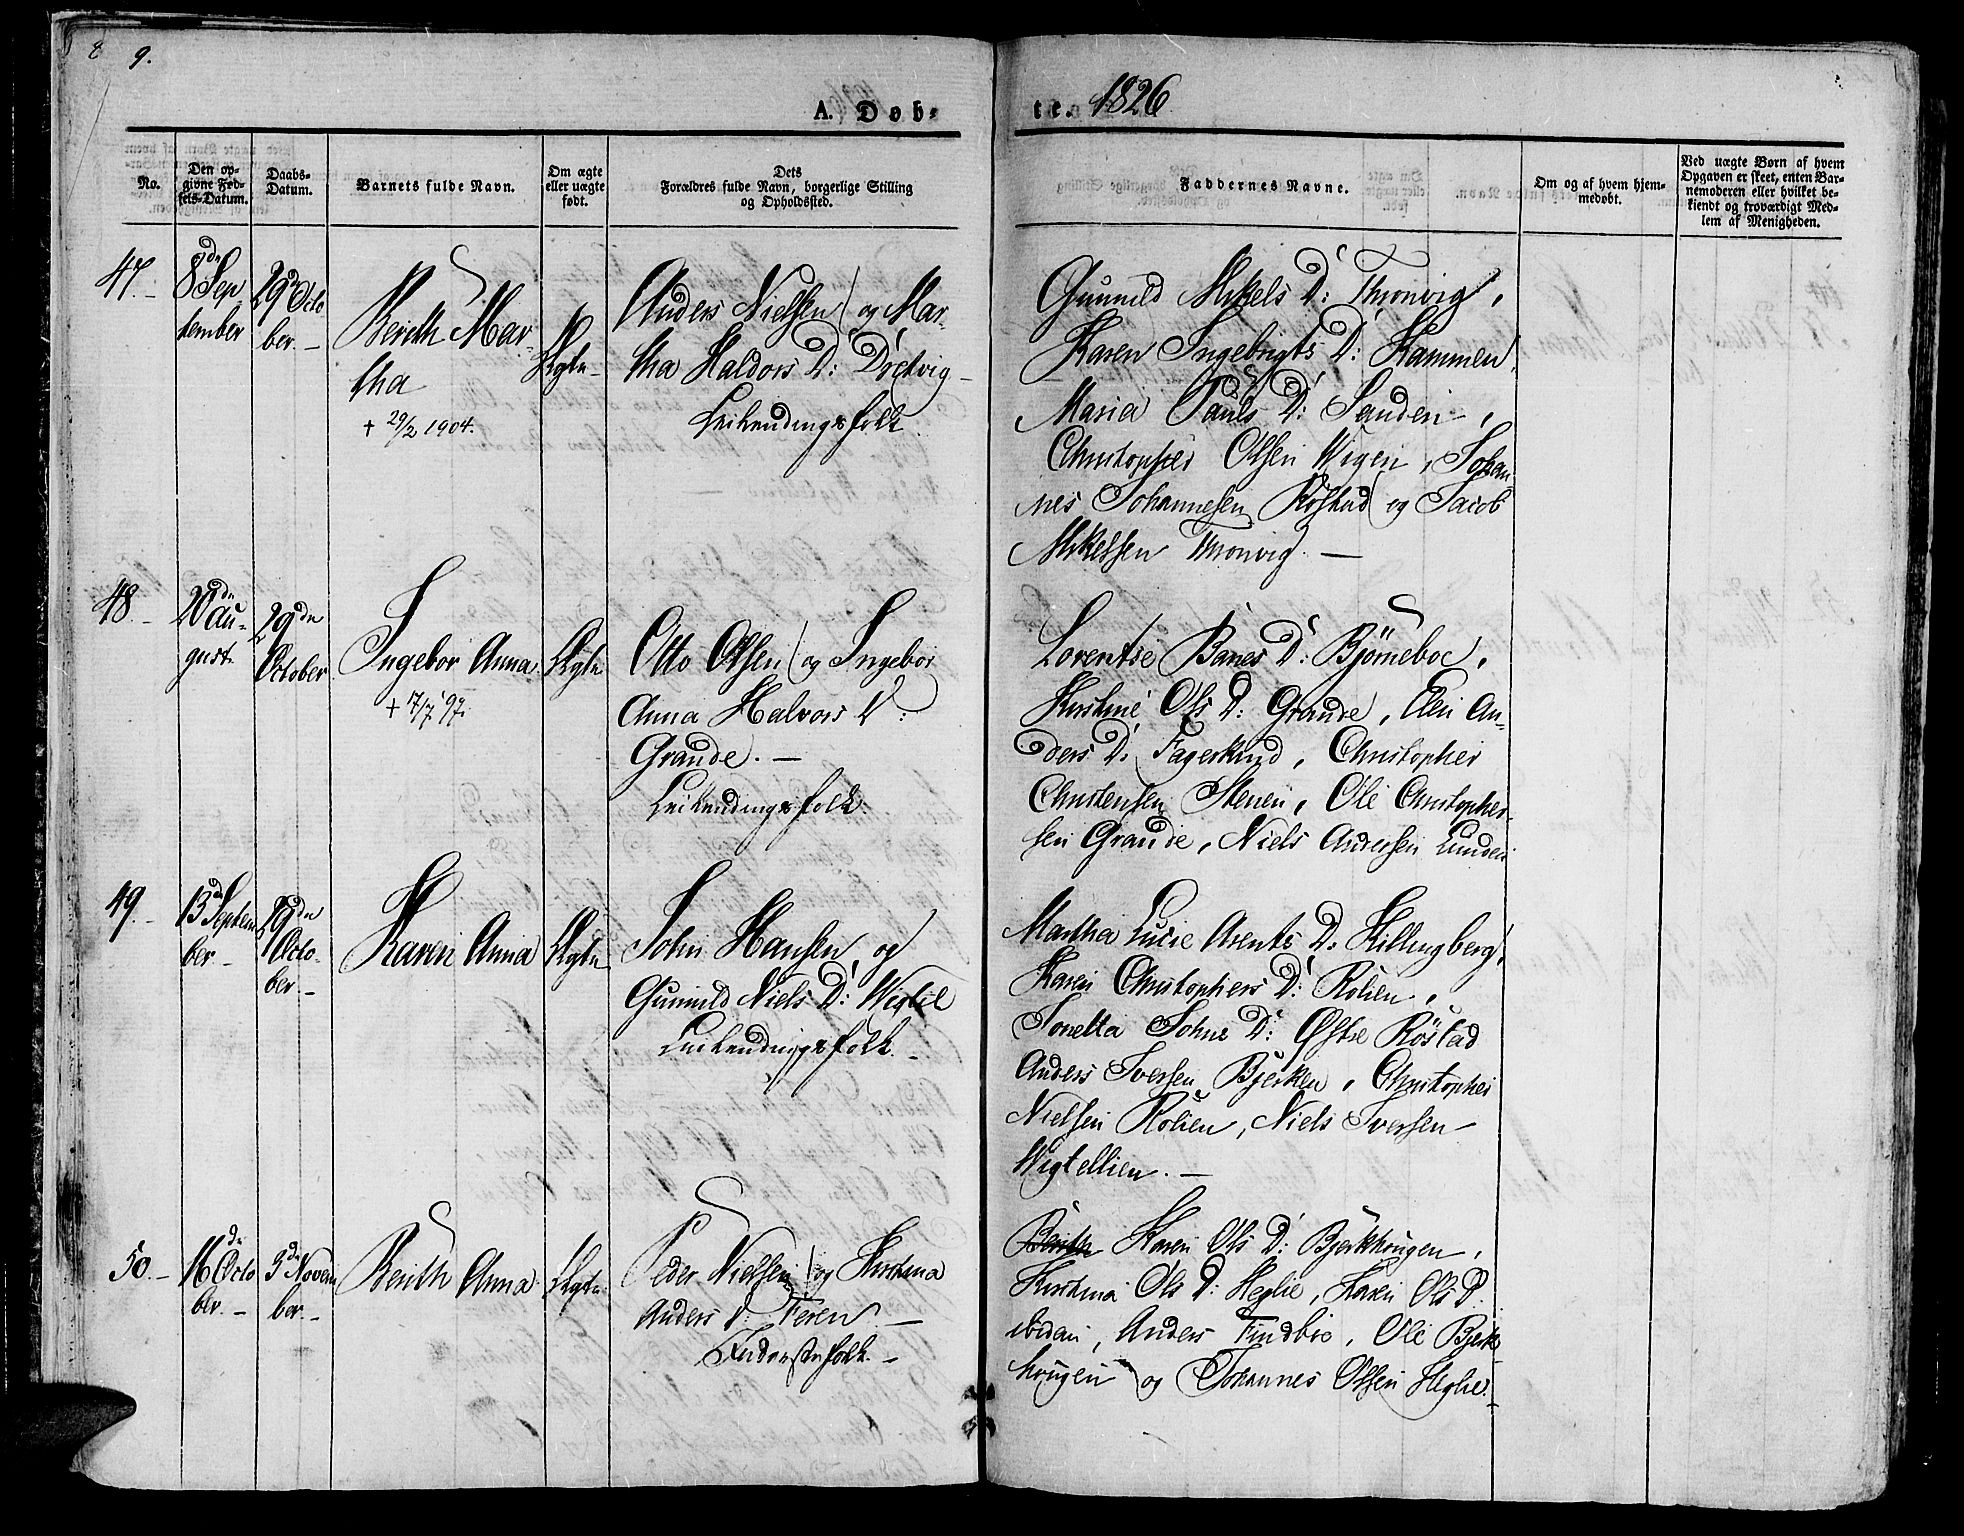 8 9.
A. Døb-
te. 1826
No.
Den op-
givne Fød-
sels-Datum.
Daabs-
Datum.
Barnets fulde Navn.
Om ægte
eller uægte
født.
Dets
Forældres fulde Navn, borgerlige Stilling
og Opholdssted.
Faddernes Navne.
Om og af hvem hjem-
medøbt.
Ved uægte Børn af hvem
Opgaven er skeet, enten Bar-
nemoderen eller hvilket be-
kiendt og troværdigt Med-
lem af Menigheden.
47.-
8de Sep
tember
29de Octo
ber.-
Berith Mar-
tha
+ 29/2 1904.
Ægte-
Anders Nielsen og Mar-
tha Haldors D: Dretvig-
Leilendingsfolk
Gunnild Mikels D: Thronvig,
Karen Ingebrigts D: Hammen,
Maria Pauls D: Sanden,
Christopher Olsen Wigen, Johan-
nes Johannesen Röstad og Jacob
Mikelsen Thronvig. -
48.-
20de Au-
gust
29de
October
Ingebor Anna
+ 17/7 97.
Ægte
Otto Olsen og Ingebor
Anna Halvors D:
Grande. -
Leilendingsfolk.
Lorentse Banes D: Björneboe,
Kirstine Ols D: Grande, Elen An-
ders D: Fagerlund, Christopher
Christensen Stenen, Ole Christopher-
sen Grande, Niels Andersen Lunden
49.-
13de Septem
ber-
29de
Octo-
ber.-
Karen Anna
Ægte
John Hansen og
Gunnild Niels D: Wigtil
Leilendingsfolk.-
Martha Lucie Arents D: Killingberg,
Karen Christophers D: Rolien,
Jonetta Johns D: Østre Röstad
Anders Iversen Bjerken, Christopher
Nielsen Rolien, Niels Iversen
Wigtellien. -
50.-
16de Octo
ber.-
3de Novem
ber.-
Berith Anna
Ægte
Peder Nielsen og Kirstina
Anders D: Feren -
Inderstfolk.-
Berith Karen Ols D: Bjerkhougen,
Kirstina Ols D: Heglie, Karen Ols D.
ibidem, Anders Findboe, Ole Bjerk-
hougen og Johannes Olsen Heglie.-